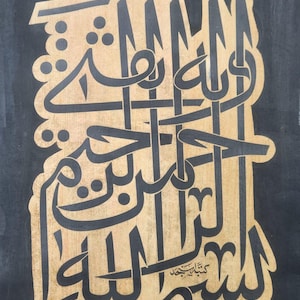 بسم الله
الرحمن الرحيم
وبه ثقتي